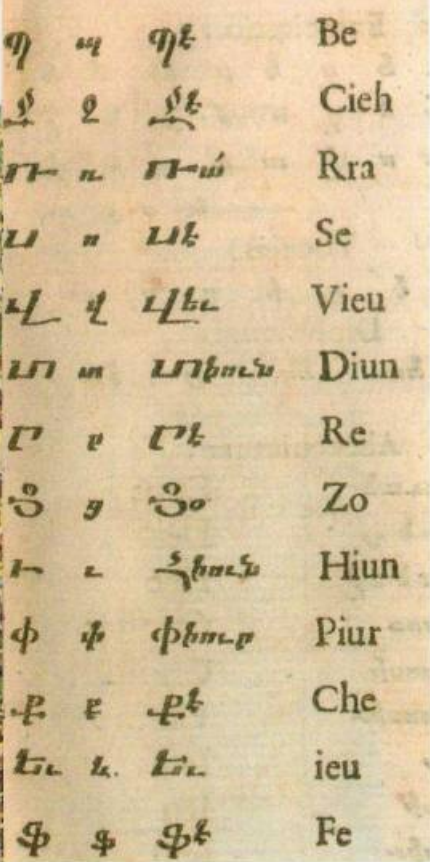 Պ պ Պէ Be
Ջ ջ Ջէ Cieh
Ռ ռ Ռա Rra
Ս ս Սէ Se
Վ վ Վեւ Vieu
Տ տ Տիւն Diun
Ր ր Րէ Re
Ց ց Ցո Zo
Ւ ւ Հիւն Hiun
Փ փ Փիւր Piur
Ք ք Քէ Che
Եւ և Եւ ieu
Ֆ ֆ Ֆէ Fe